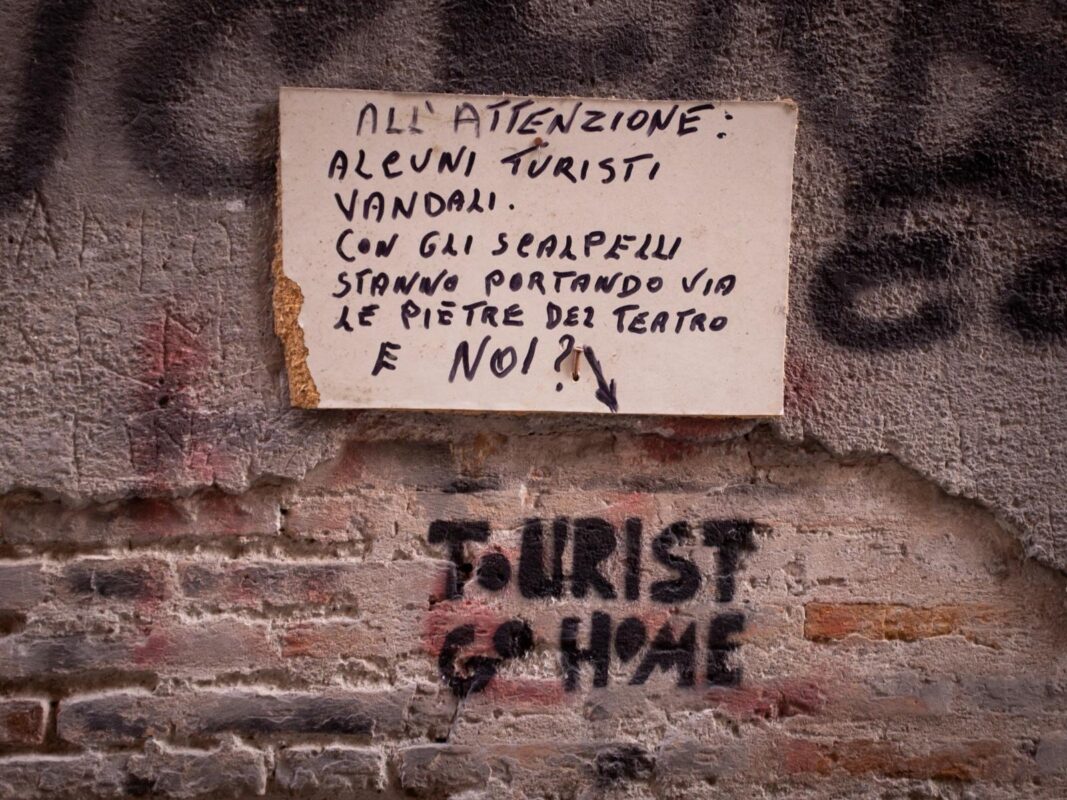 ALL'ATTENZIONE:
ALCUNI TURISTI
VANDALI.
CON GLI SCALPELLI
STANNO PORTANDO VIA
LE PIETRE DEL TEATRO
E NOI?
TOURIST
GO HOME